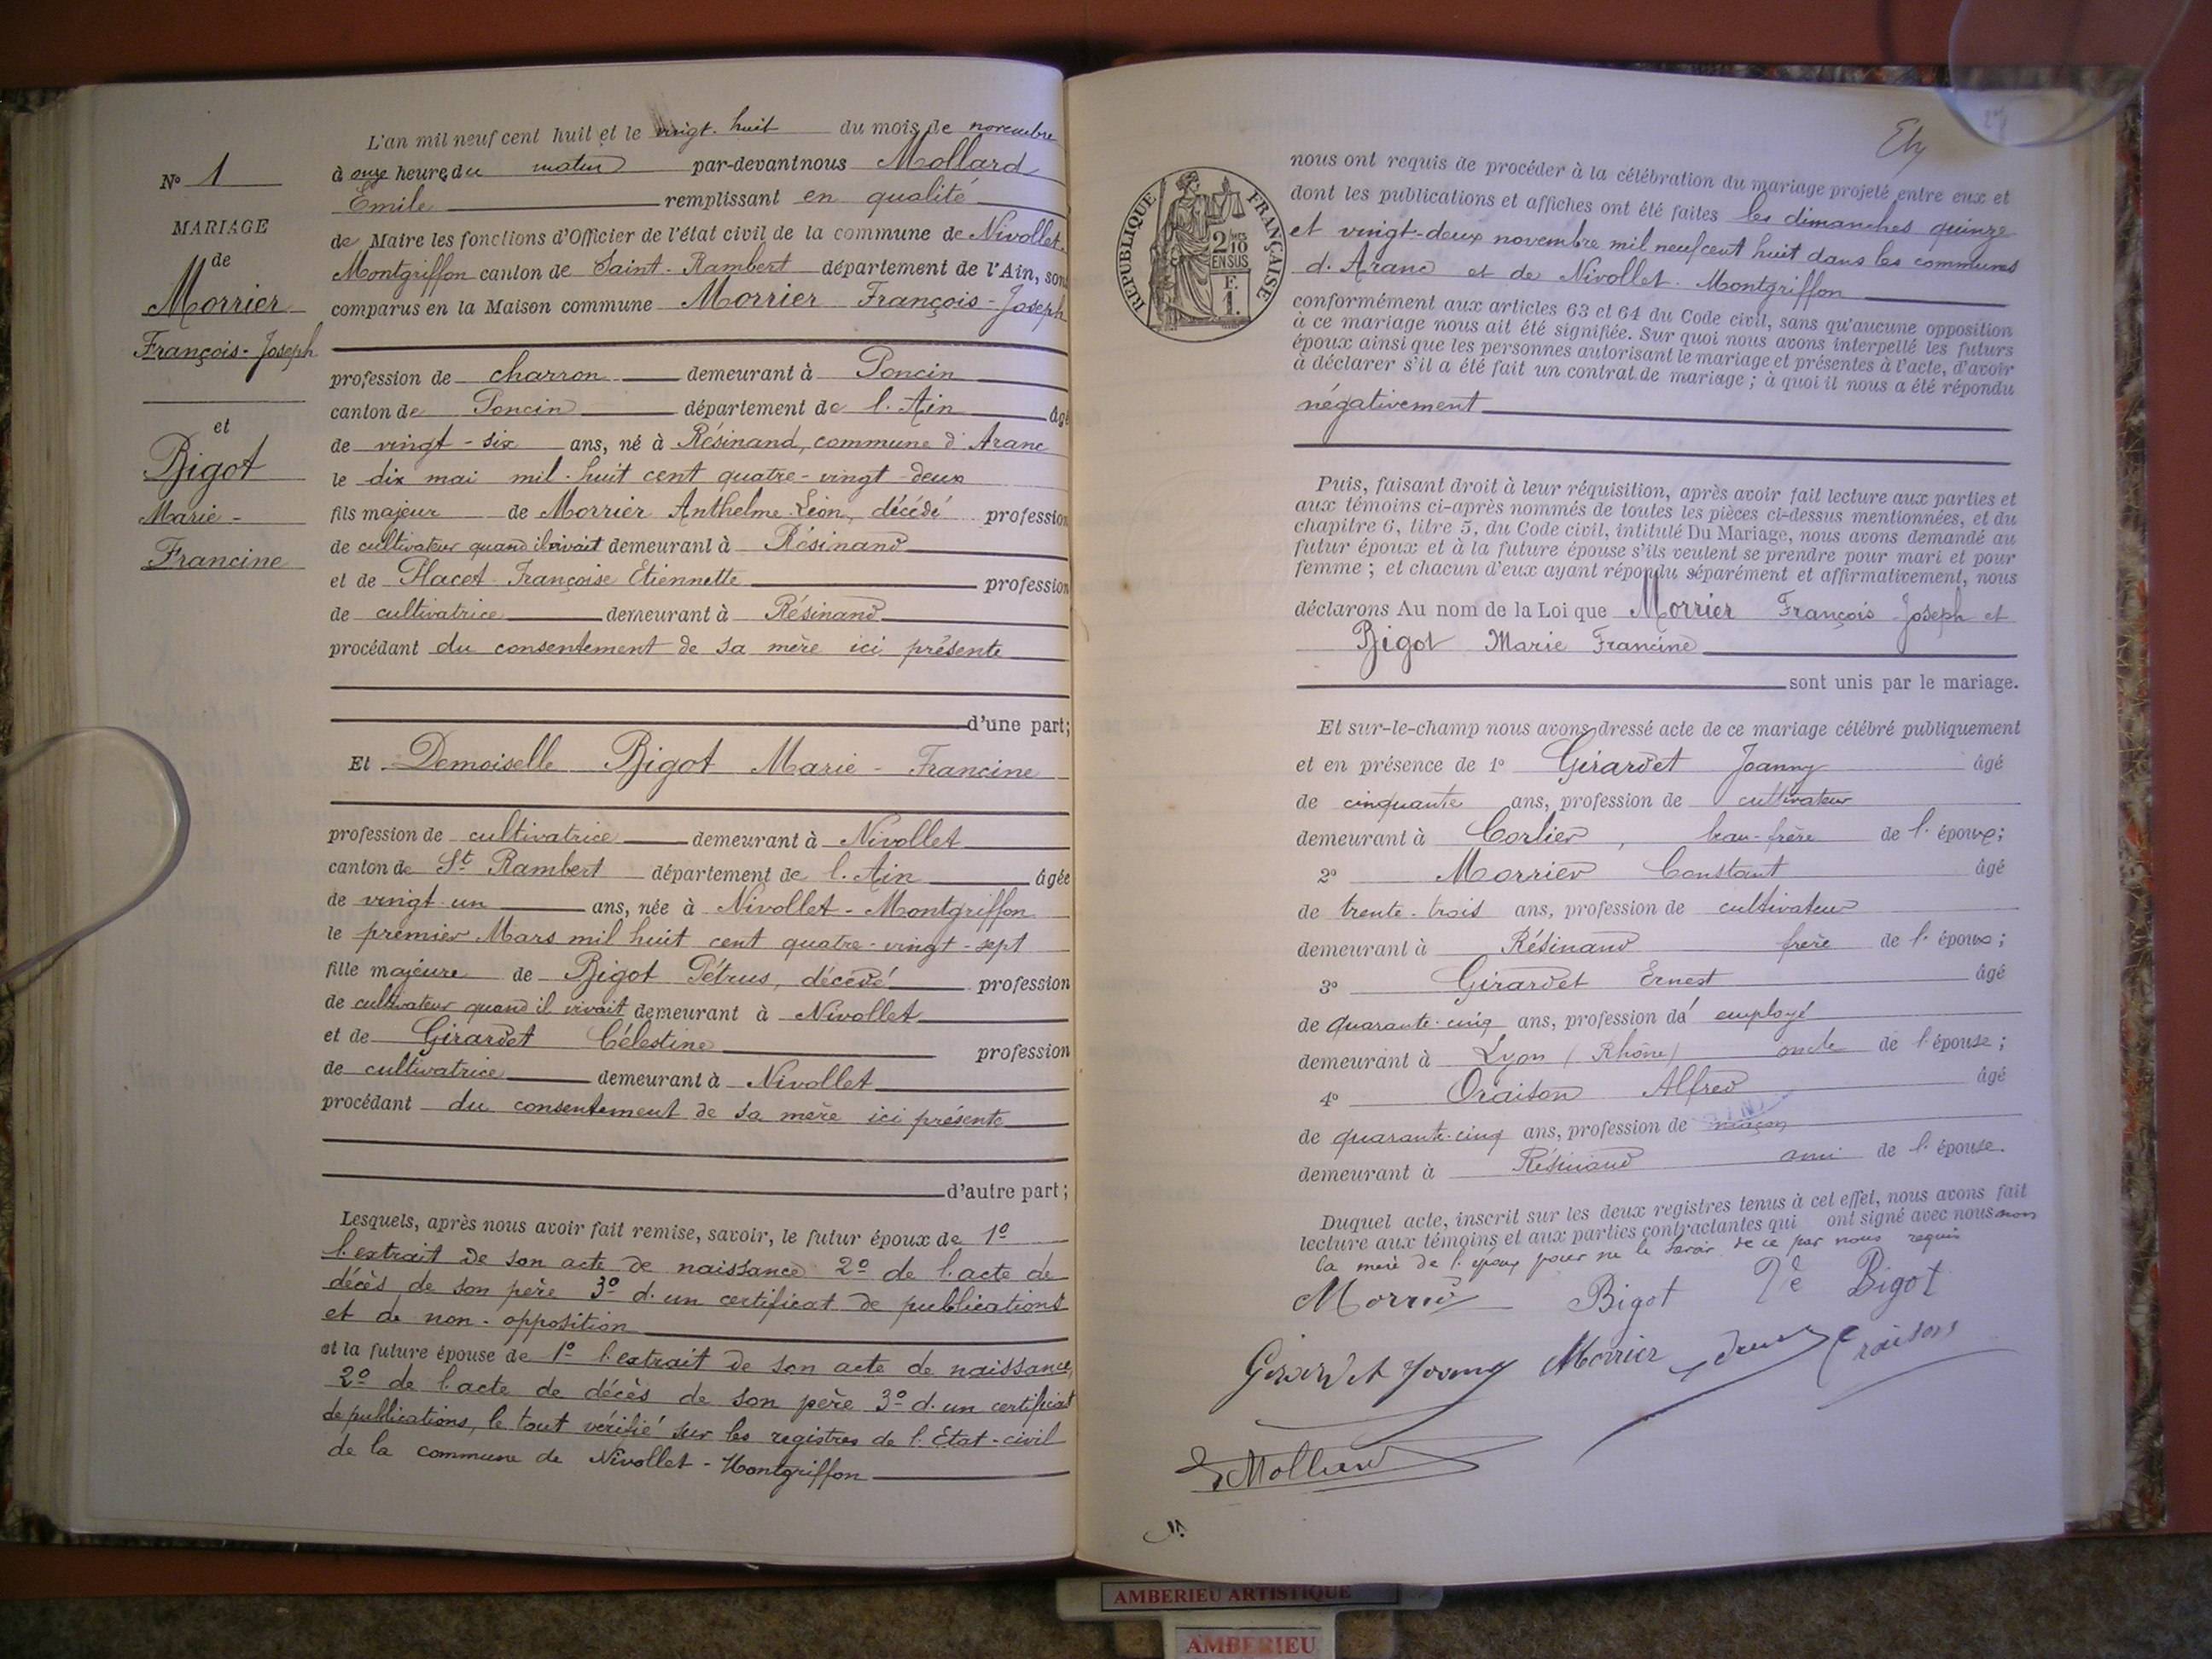 N° 1
MARIAGE
de
Morrier
François-Joseph
et
Bigot
Marie-
Francine
L'an mil neuf cent huit et le vingt-huit du mois de novembre
à onze heures du matin par-devant nous Mollard
Emile remplissant en qualité
de Maire les fonctions d'Officier de l'état civil de la commune de Nivollet-
Montgriffon canton de Saint-Rambert département de l'Ain, son
comparus en la Maison commune Morrier François-Joseph
profession de charron demeurant à Poncin
canton de Poncin département de l'Ain âgé
de vingt-six ans, né à Résinand, commune d'Aranc
le dix mai mil-huit cent quatre-vingt-deux
fils majeur de Morrier Anthelme Léon, décédé profession
de cultivateur quand il vivait demeurant à Résinand
et de Placet Françoise Etiennette profession
de cultivatrice demeurant à Résinand
procédant du consentement de sa mère ici présente
d'une part;
Et Demoiselle Bigot Marie-Francine
profession de cultivatrice demeurant à Nivollet
canton de St Rambert département de l'Ain âgée
de vingt-un ans, née à Nivollet-Montgriffon
le premier Mars mil huit cent quatre-vingt-sept
fille majeure de Bigot Pétrus, décédé profession
de cultivateur quand il vivait demeurant à Nivollet
et de Girardet Célestine profession
de cultivatrice demeurant à Nivollet
procédant du consentement de sa mère ici présente
d'autre part;
Lesquels, après nous avoir fait remise, savoir, le futur époux de 1º
l'extrait de son acte de naissance 2º de l'acte de
décès de son père 3º d'un certificat de publications
et de non-opposition
et la future épouse de 1º l'extrait de son acte de naissance,
2º de l'acte de décès de son père 3º d'un certificat
de publications, le tout vérifié sur les registres de l'Etat-civil
de la commune de Nivollet-Montgriffon
RÉPUBLIQUE FRANÇAISE
2/10 EN SUS
F. 1.
nous ont requis de procéder à la célébration du mariage projeté entre eux et
dont les publications et affiches ont été faites les dimanches quinze
et vingt-deux novembre mil neuf cent huit dans les communes
d'Aranc et de Nivollet-Montgriffon
conformément aux articles 63 et 64 du Code civil, sans qu'aucune opposition
à ce mariage nous ait été signifiée. Sur quoi nous avons interpellé les futurs
époux ainsi que les personnes autorisant le mariage et présentes à l'acte, d'avoir
à déclarer s'il a été fait un contrat de mariage; à quoi il nous a été répondu
négativement
Puis, faisant droit à leur réquisition, après avoir fait lecture aux parties et
aux témoins ci-après nommés de toutes les pièces ci-dessus mentionnées, et du
chapitre 6, titre 5, du Code civil, intitulé Du Mariage, nous avons demandé au
futur époux et à la future épouse s'ils veulent se prendre pour mari et pour
femme; et chacun d'eux ayant répondu séparément et affirmativement, nous
déclarons Au nom de la Loi que Morrier François-Joseph et
Bigot Marie Francine
sont unis par le mariage.
Et sur-le-champ nous avons dressé acte de ce mariage célébré publiquement
et en présence de 1º Girardet Joanny âgé
de cinquante ans, profession de cultivateur
demeurant à Corlier, beau-frère de l'époux;
2º Morrier Constant âgé
de trente-trois ans, profession de cultivateur
demeurant à Résinand frère de l'époux;
3º Girardet Ernest âgé
de quarante-cinq ans, profession d'employé
demeurant à Lyon (Rhône) oncle de l'épouse;
4º Oraison Alfred âgé
de quarante-cinq ans, profession de maçon
demeurant à Résinand ami de l'épouse.
Duquel acte, inscrit sur les deux registres tenus à cet effet, nous avons fait
lecture aux témoins et aux parties contractantes qui ont signé avec nous non
la mère de l'époux pour ne le savoir de ce par nous requis
Morrier Bigot Vve Bigot
Girardet Joanny Morrier Oraison
E Mollard
AMBERIEU ARTISTIQUE
AMBERIEU